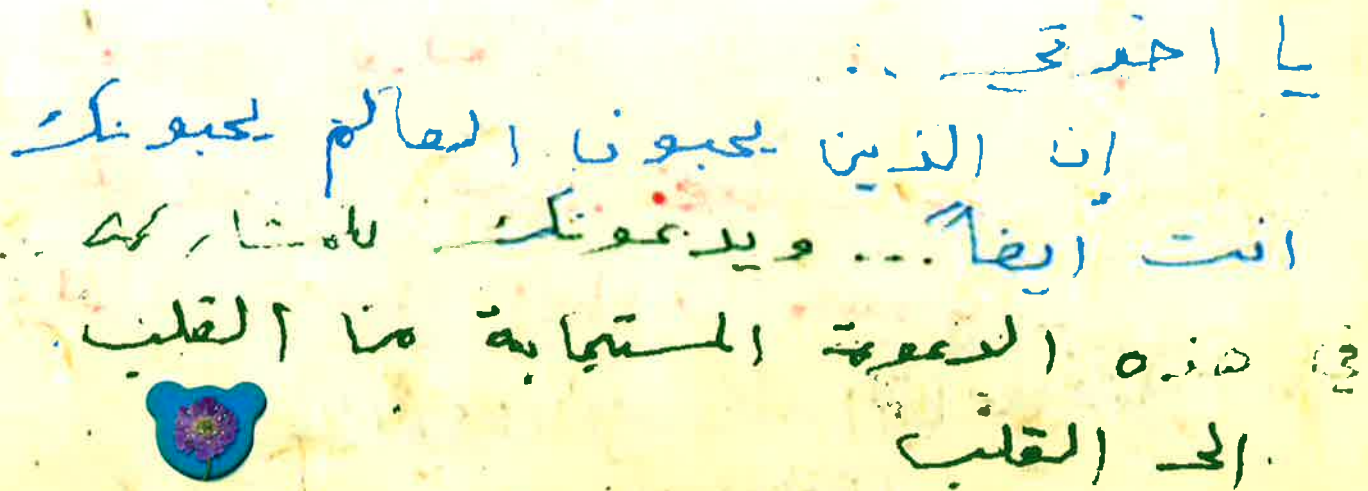 يا اخوتي ..
إن الذين يحبون العالم يحبونك
انت ايضاً ... ويدعونك للمشاركة ..
في هذه الدعوة المستجابة من القلب
الى القلب